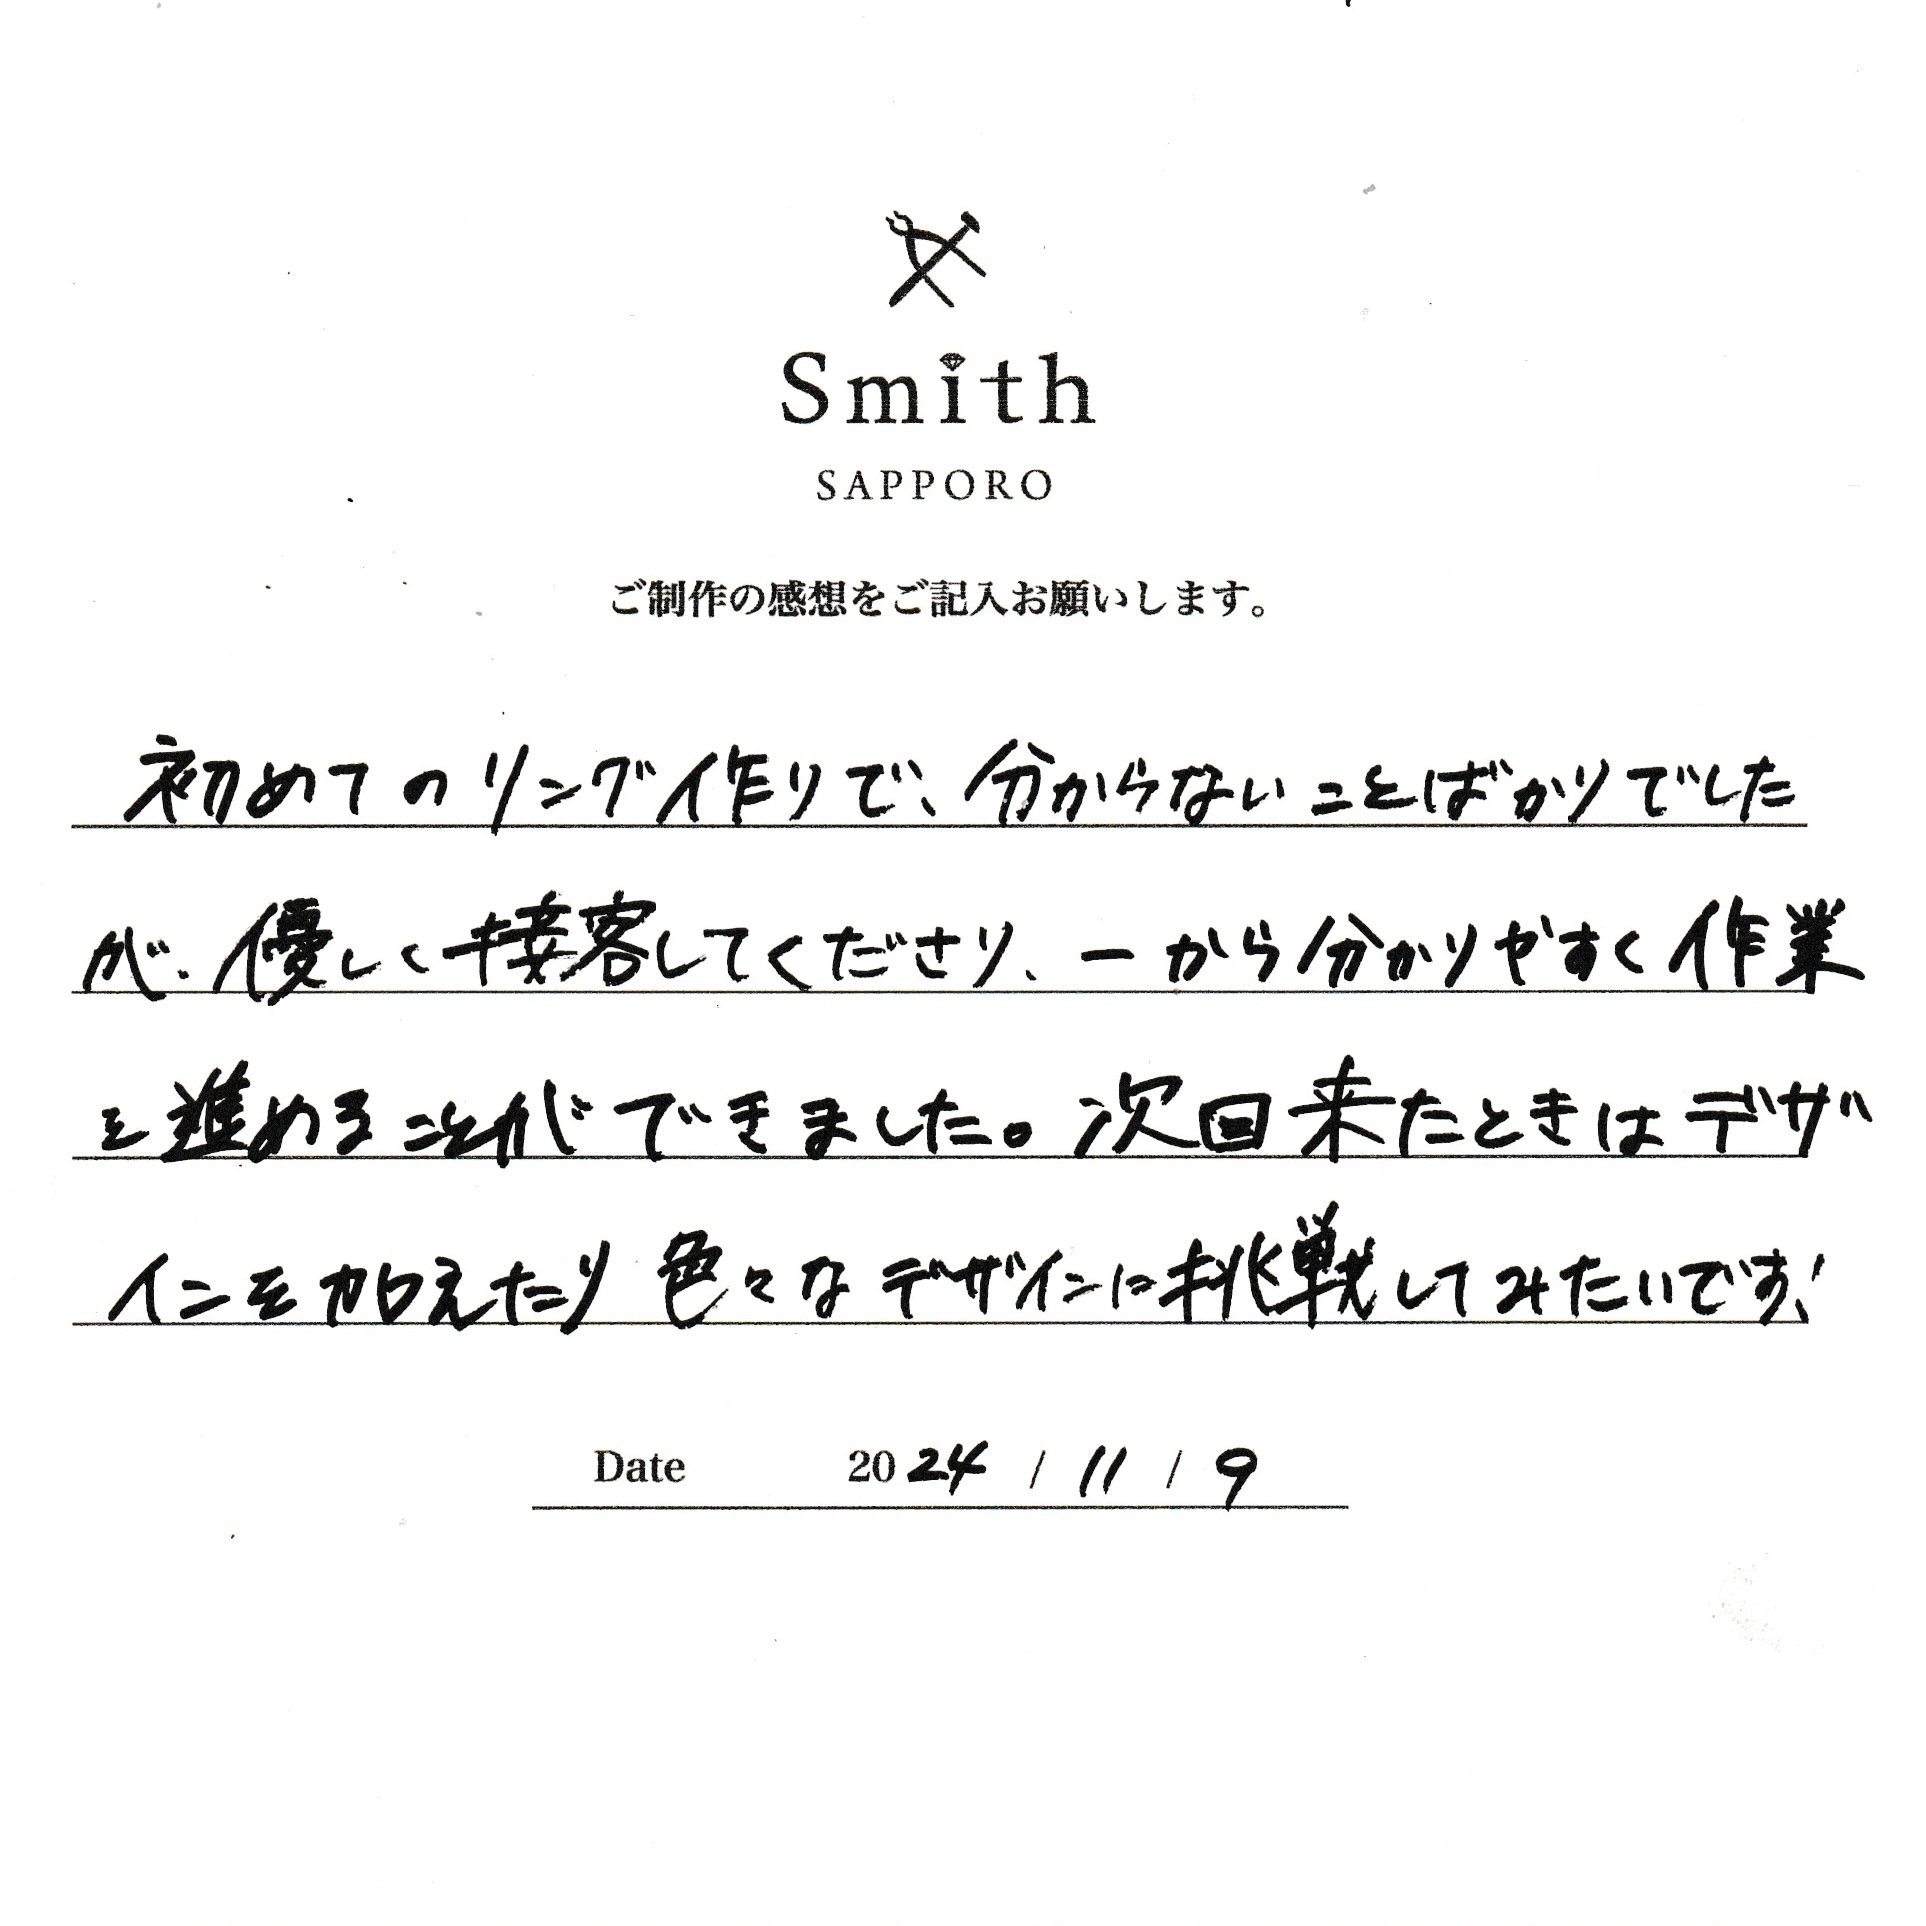 Smith
SAPPORO
ご制作の感想をご記入お願いします。
初めてのリング作りで、分からないことばかりでした
が、優しく接客してくださり、一から分かりやすく作業
を進めることができました。次回来たときはデザ
インを加えたり色々なデザインに挑戦してみたいです!
Date 2024 / 11 / 9